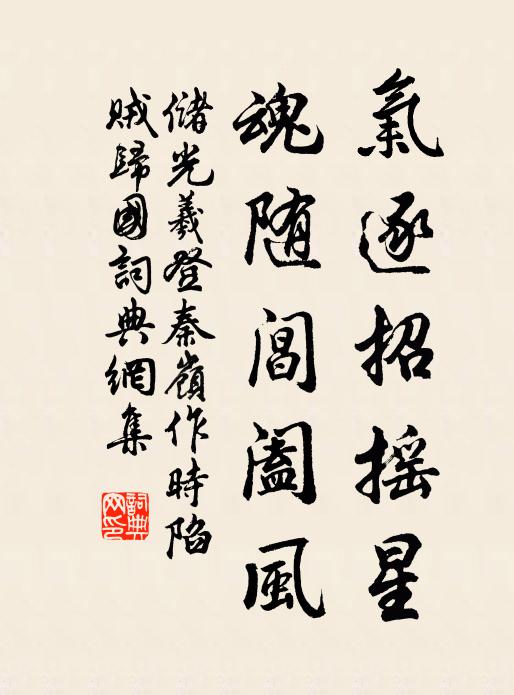 氣逐招摇星
魂随閶阖風
儲光羲登秦嶺作時陷
賊歸國詞典網集
詞典
网印